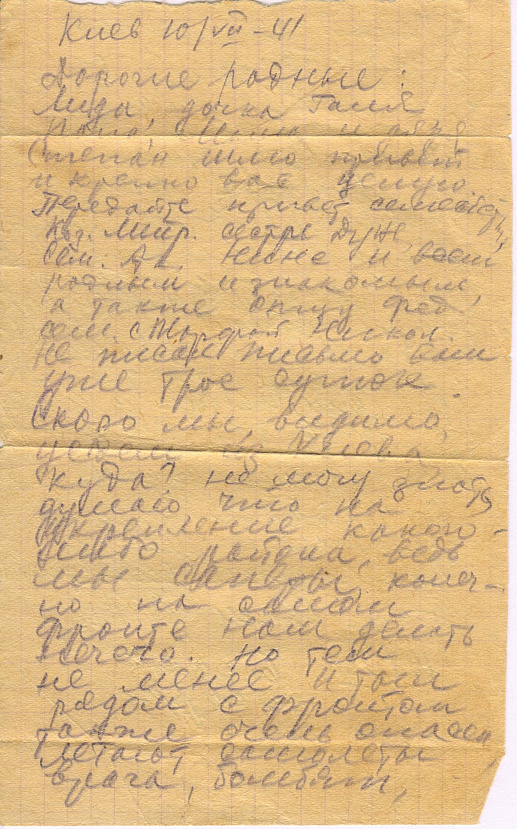 Киев 10/VII-41
Дорогие родные:
Лида, дочка Галя
Папа, и
Степан шлю привет
и крепко вас целую.
Передайте привет семейству
сестре Дуне,
сем. Нине и всем
родным и знакомым,
а также
сем.
Не писал письмо вам
уже трое суток.
Скоро мы, видимо,
уедем из Киева,
куда? не могу знать
думаю что на
укрепление какого-
либо района, ведь
мы саперы, конеч-
но на самом
фронте нам делать
нечего. Но тем
не менее и там
рядом с фронтом
также очень опасен,
летают самолеты
врага, бомбят,